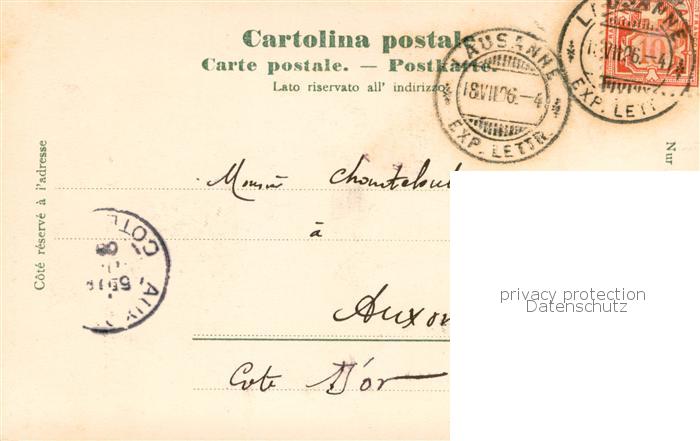 Cartolina postale
Carte postale. — Postkarte.
Lato riservato all' indirizzo
LAUSANNE
18.VII.06.–4
EXP. LETTR.
LAUSANNE
18.VII.06.–4
EXP. LETTR.
10
Côté réservé à l'adresse
Nur
Monsieur
à
Auxon
Cote D'or
COTE
AUX
privacy protection
Datenschutz